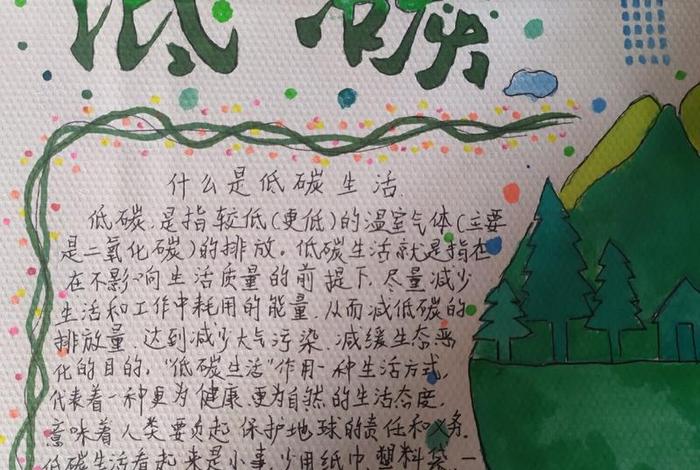 低碳
什么是低碳生活
低碳,是指较低(更低)的温室气体(主要
是二氧化碳)的排放。低碳生活就是指在
在不影响生活质量的前提下,尽量减少
生活和工作中耗用的能量,从而减低碳的
排放量,达到减少大气污染,减缓生态恶
化的目的,"低碳生活"作用一种生活方式,
代表着一种更为健康、更为自然的生活态度,
意味着人类要负起保护地球的责任和义务。
低碳生活看起来是小事,少用纸巾,塑料袋,一